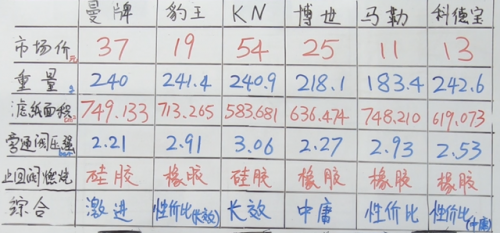 曼牌 豹王 KN 博世 马勒 科德宝
市场价元 37 19 54 25 11 13
重量 240 241.4 240.9 218.1 183.4 242.6
滤纸面积 749.133 713.265 583.681 636.474 748.210 619.073
旁通阀压强 2.21 2.91 3.06 2.27 2.93 2.53
止回阀燃烧 硅胶 橡胶 硅胶 橡胶 橡胶 橡胶
综合 激进 性价比(长效) 长效 中庸 性价比 性价比(中庸)